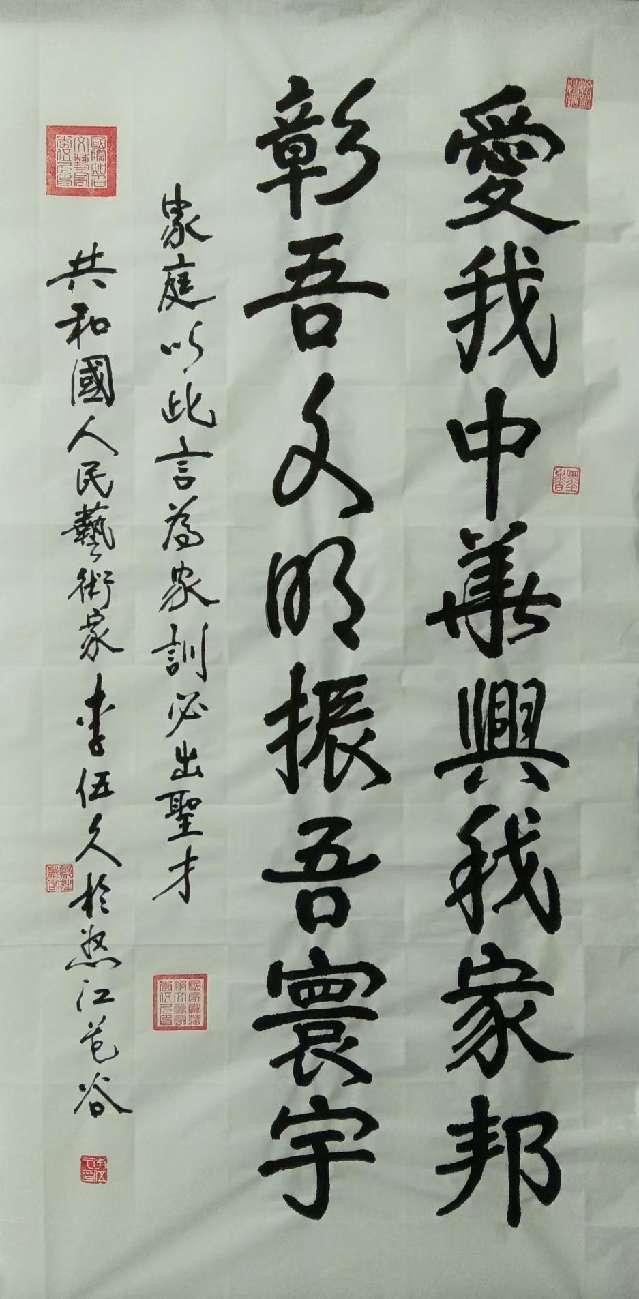 愛我中華興我家邦
彰吾文明振吾寰宇
家庭以此言為家訓必出聖才
共和國人民藝術家李伍久於怒江花谷